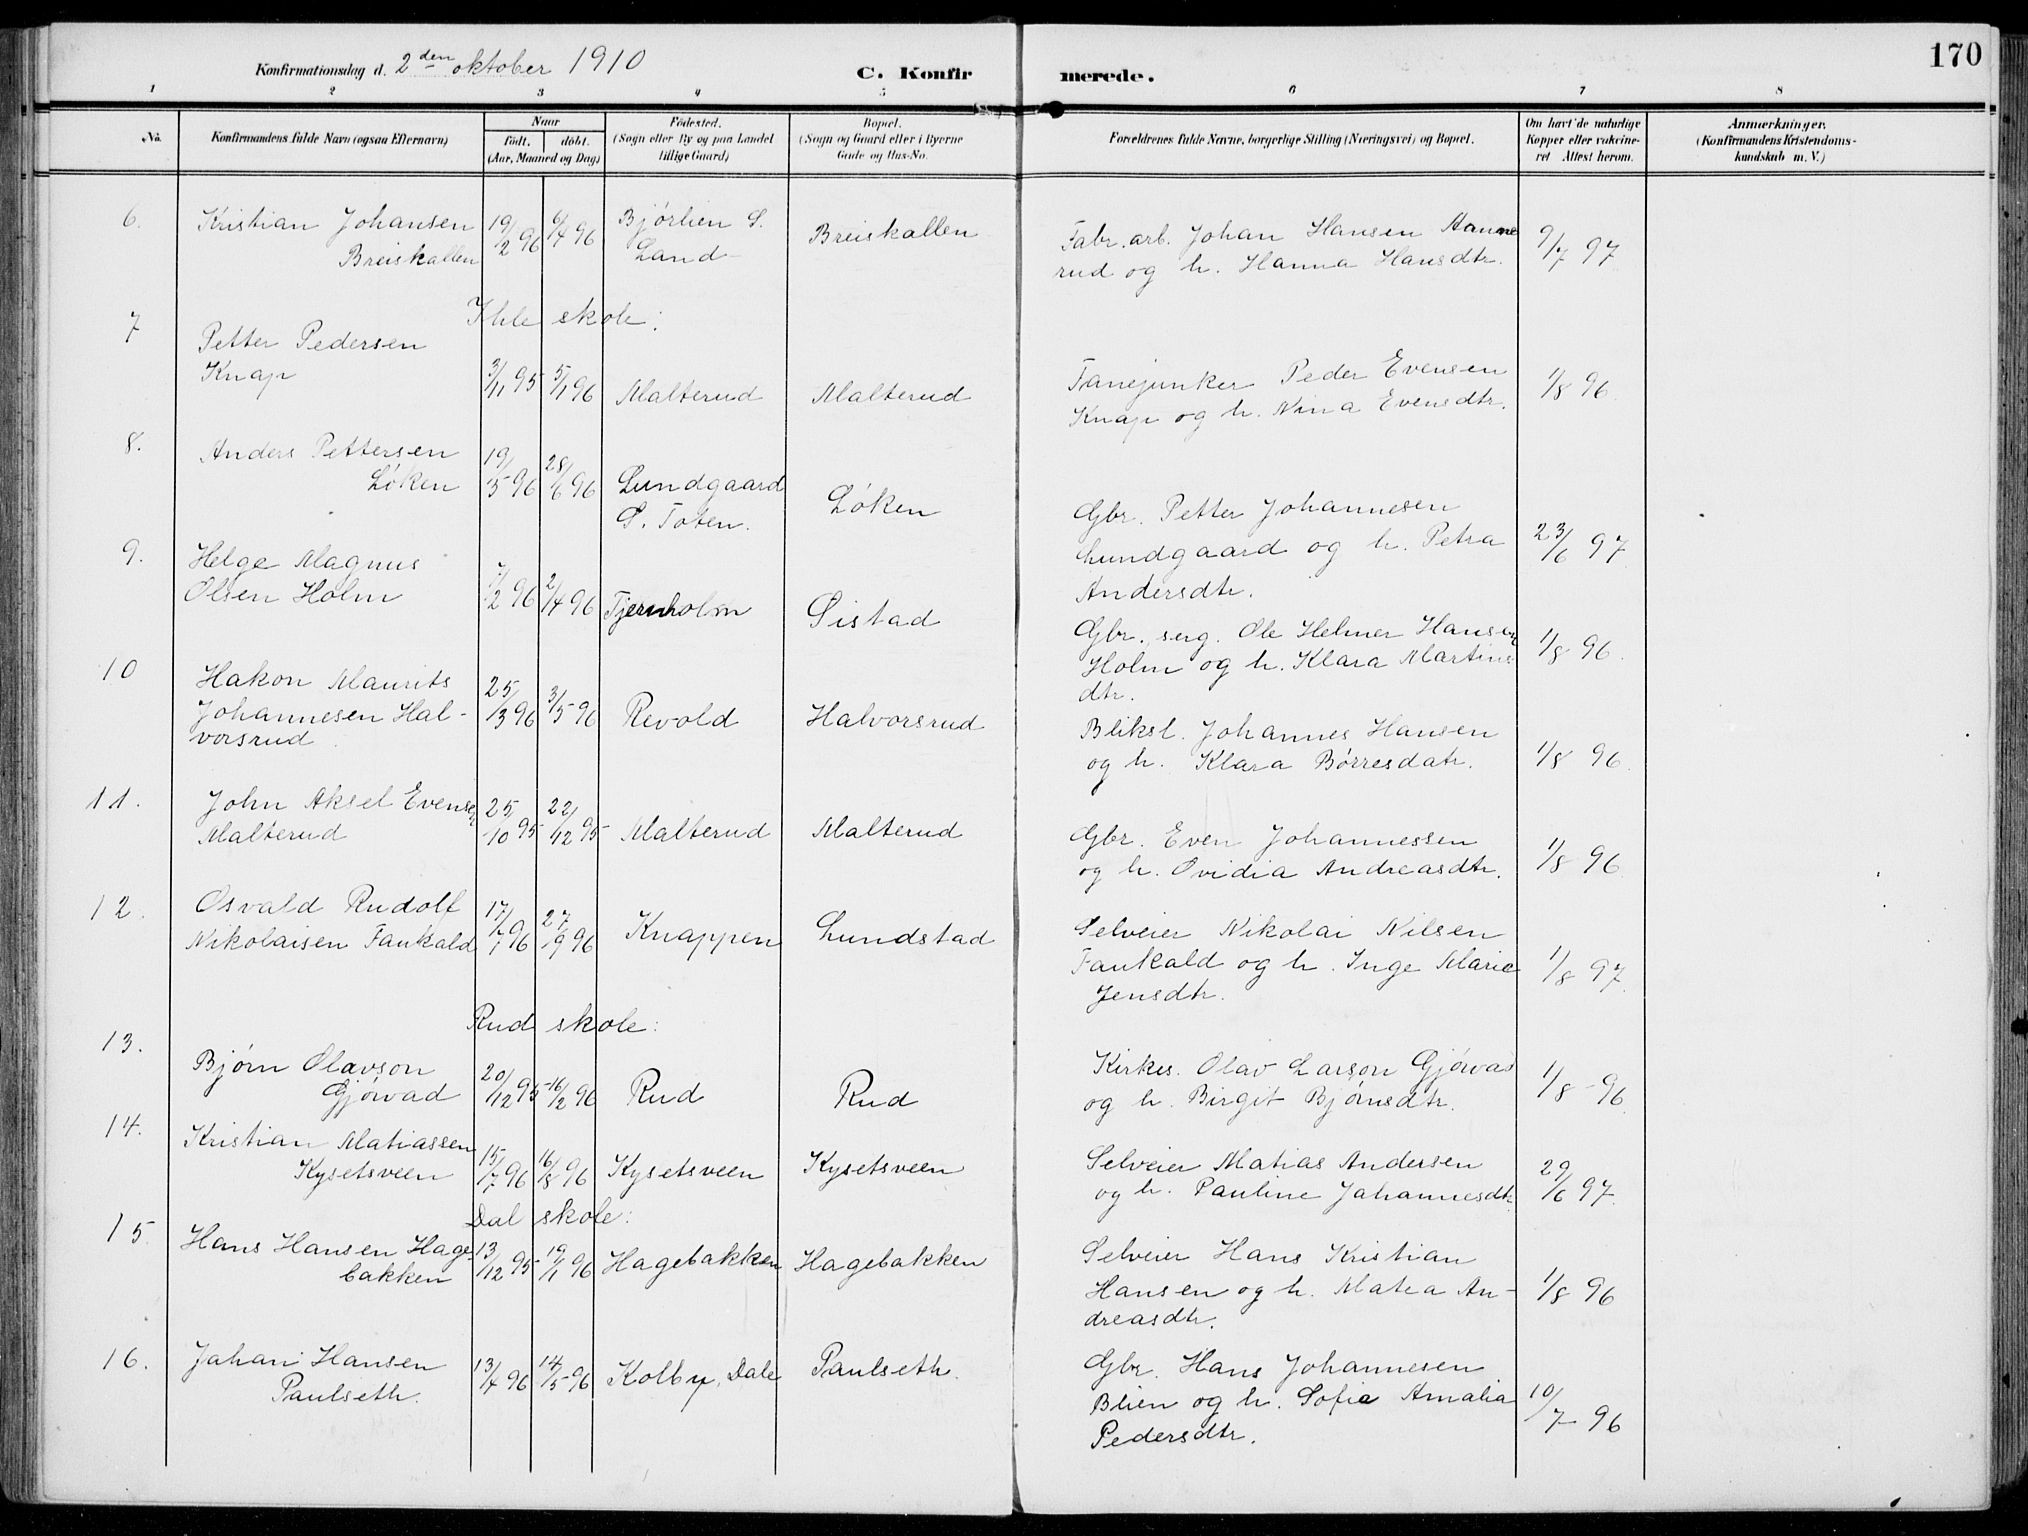 170
Konfirmationsdag d. 2den oktober 1910
C. Konfirmerede.
1 2 3 4 5 6 7 8
No. Konfirmandens fulde Navn (ogsaa Efternavn) Naar født. døbt. (Aar, Maaned og Dag) Fødested. (Sogn eller By og paa Landet tillige Gaard) Bopæl. (Sogn og Gaard eller i Byerne Gade og Hus-No. Forældrenes fulde Navne, borgerlige Stilling (Næringsvei) og Bopæl. Om havt de naturlige Kopper eller vakcineret Attest herom. Anmærkninger. (Konfirmandens Kristendomskundskab m. V.)
6. Kristian Johansen 19/2 96 6/4 96 Bjørlien S. Breiskallen Fabr. arb. Johan Hansen Aanne 9/7 97
Breiskallen Land rud og h. Hanna Hansdtr.
Ihle skole:
7 Petter Pedersen
Knap 3/11 95 5/1 96 Malterud Malterud Fanejunker Peder Evensen 1/8 96.
Knap og h. Nina Evensdtr.
8. Anders Pettersen
Løken 19/5 96 28/6 96 Lundgaard Løken Gbr. Petter Johannesen 23/6 97.
S. Toten. Lundgaard og h. Petra
Andersdtr.
9. Helge Magnus
Olsen Holm 7/2 96 2/4 96 Tjernholm Sistad Gbr. serg. Ole Helmer Hansen 1/8 96.
Holm og h. Klara Martins
dtr.
10 Hakon Maurits
Johannesen Hal- 25/3 96 3/5 96 Revold Halvorsrud Bliksl. Johannes Hansen 1/8 96.
vorsrud. og h. Klara Børresdatr.
11. John Aksel Evensen
Malterud 25/10 95 22/12 95 Malterud Malterud Gbr. Even Johannessen 1/8 96
og h. Ovidia Andreasdtr.
12. Osvald Rudolf
Nikolaisen Faukald 17/7 96 27/9 96 Knappen Lundstad Selveier Nikolai Nilsen 1/8 97.
Faukald og h. Inge Marie
Jensdtr.
Rud skole:
13. Bjørn Olavson
Gjøvad 20/12 95 16/2 96 Rud Rud Kirkes. Olav Larson Gjøvad 1/8 96
og h. Birgit Bjørnsdtr.
14. Kristian Matiassen
Kysetsveen 15/7 96 16/8 96 Kysetsveen Kysetsveen Selveier Matias Andersen 29/6 97.
og h. Pauline Johannesdtr
Dal skole:
15. Hans Hansen Hage-
bakken 13/12 95 19/1 96 Hagebakken Hagebakken Selveier Hans Kristian 1/8 96
Hansen og h. Matea An-
dreasdtr.
16. Johan Hansen 13/4 96 14/5 96 Kolby, Dale Paulseth. Gbr. Hans Johannesen 10/7 96
Paulseth. Blien og h. Sofie Amalia
Pedersdtr.